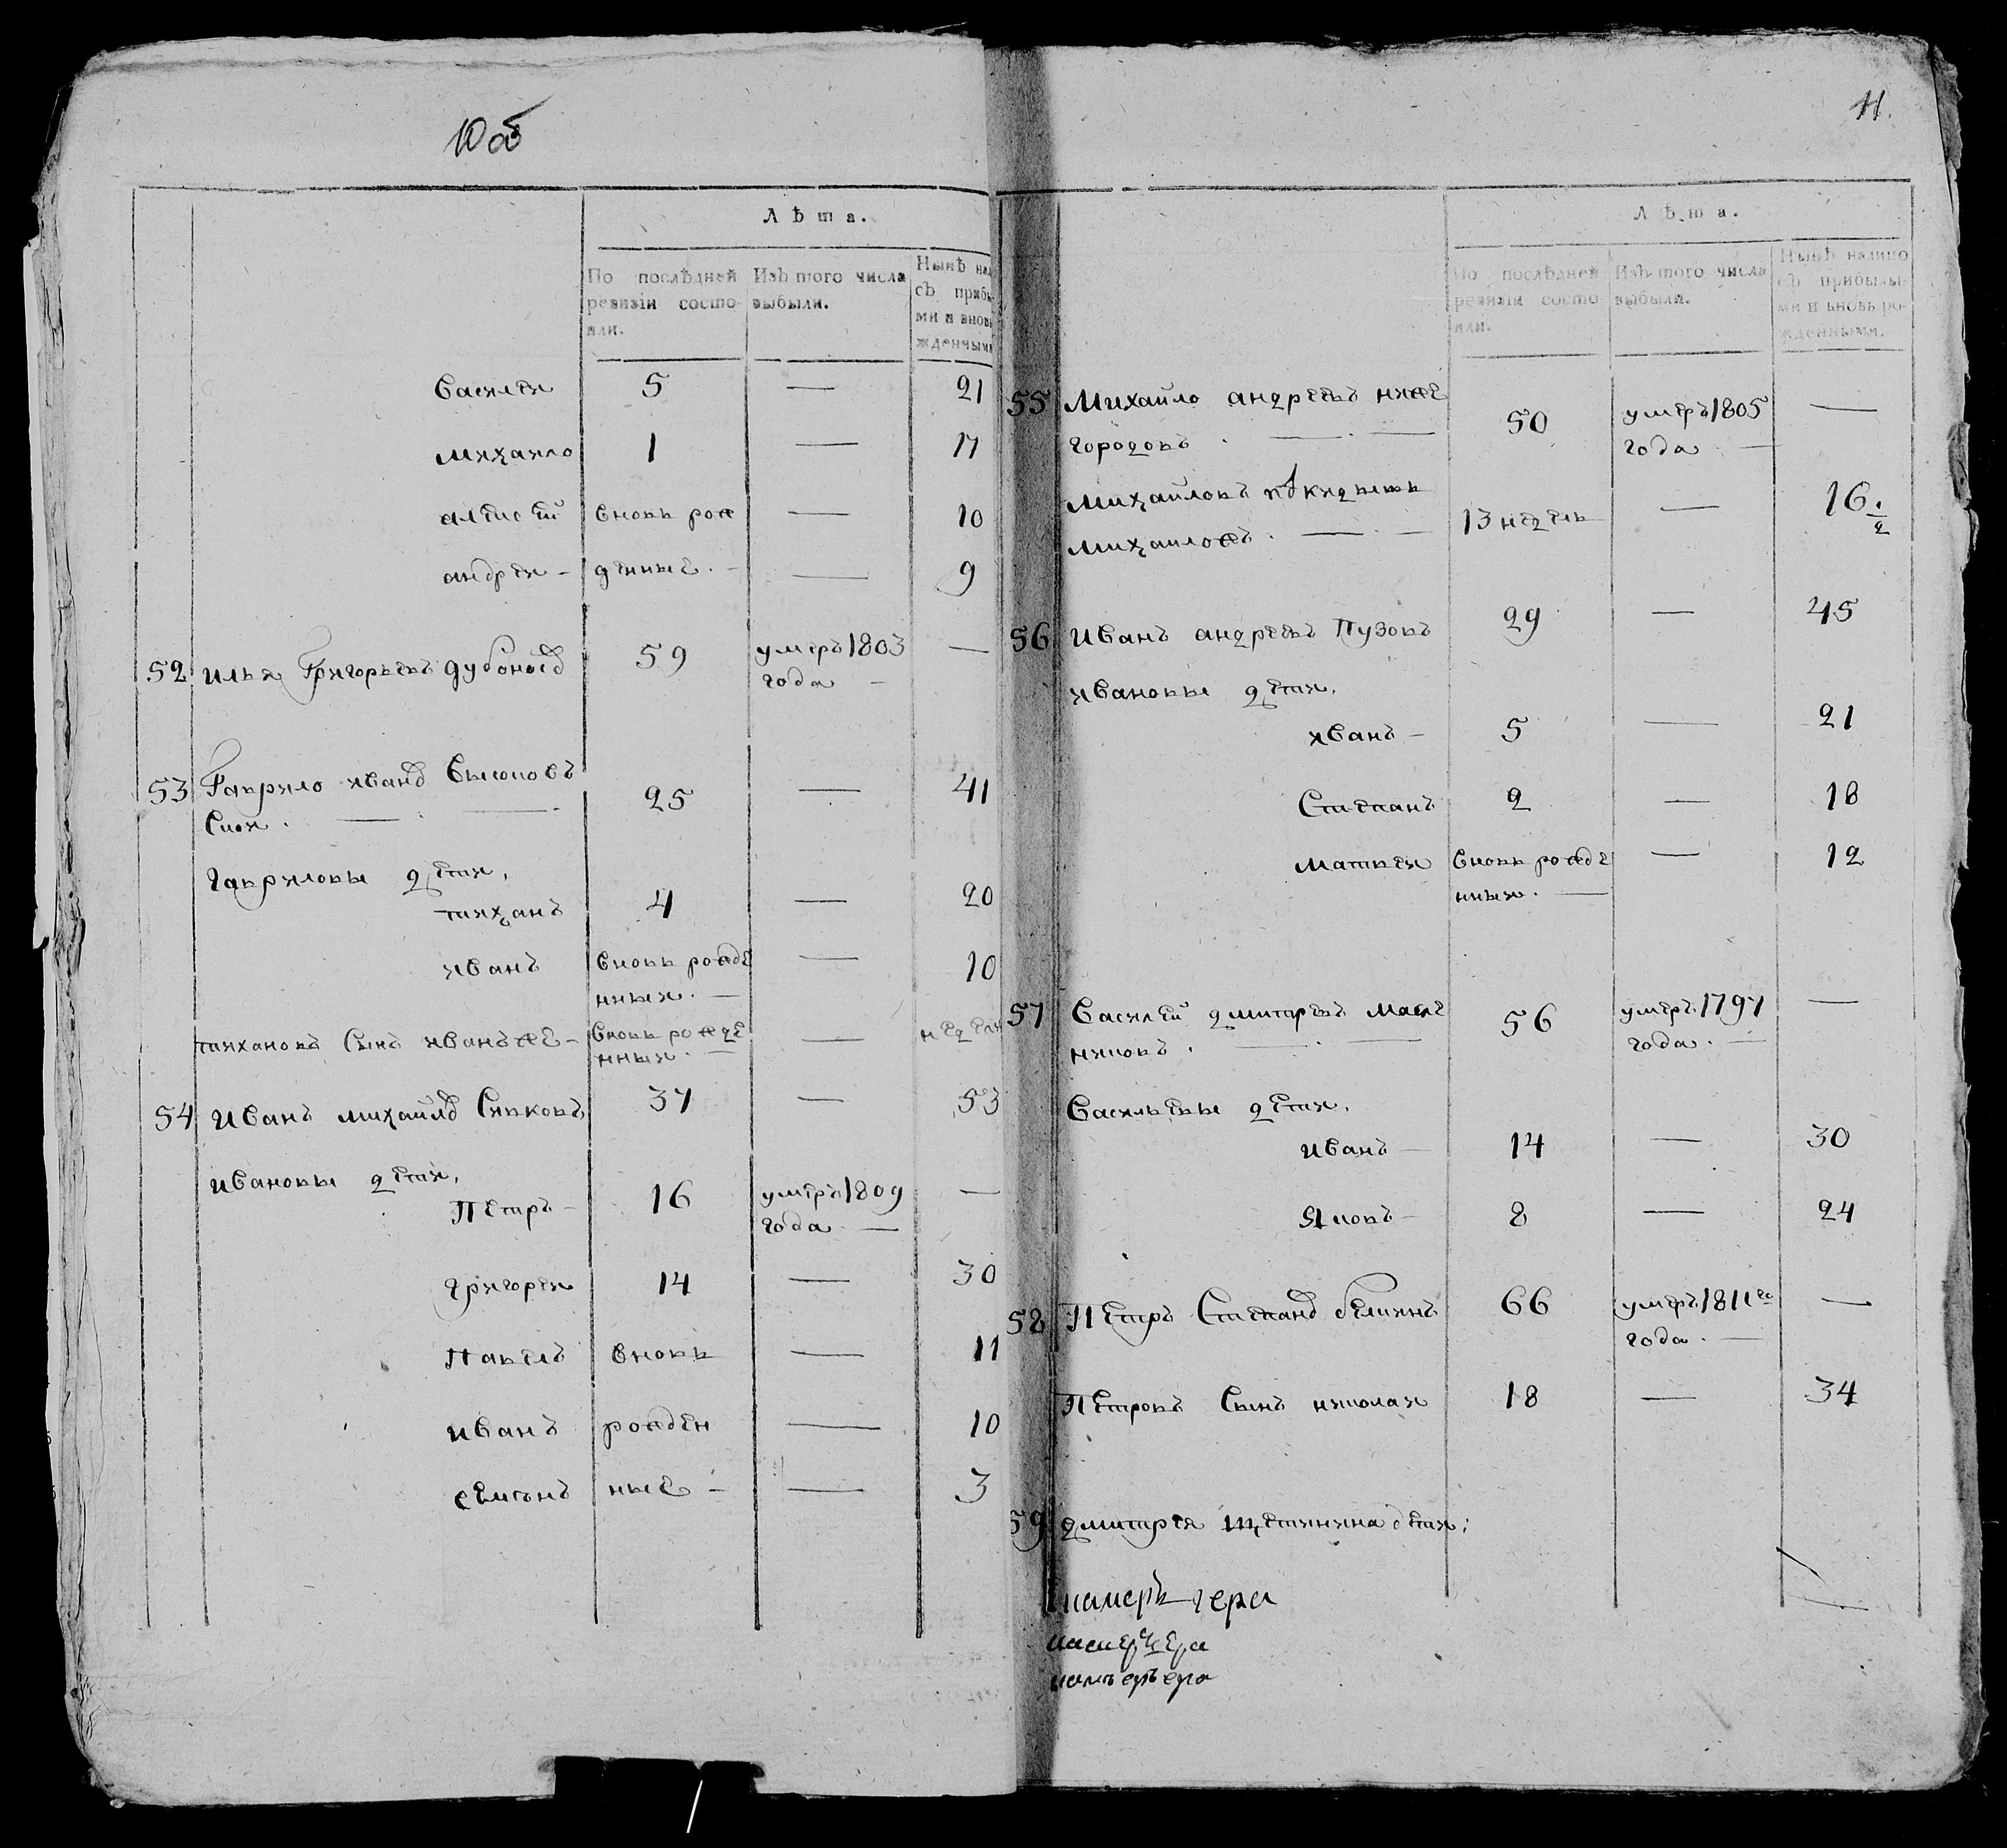 10 об
Лѣта.
По послѣдней ревизіи состояли.
Изъ того числа выбыли.
Нынѣ нали
съ прибы
ми и вновь
жденными
Василеи 5 — 21
михаило 1 — 17
алексей вновь рож — 10
андреи – денные. – — 9
52 илья Григорьевъ дубоносов 59 умеръ 1803 —
года —
53 Гаврило иванов Высоковъ 25 — 41
Гавриловы дети,
тиханъ 4 — 20
иванъ вновь рожде — 10
нныи. —
тихановъ Сынъ иванъ же – вновь рожде — недели
нныи. —
54 Иванъ михайлов 37 — 53
ивановы дети,
Петръ – 16 умеръ 1809 —
года. —
григореи 14 — 30
Павелъ вновь — 11
иванъ рожден — 10
семионъ ные – — 3
11.
Лѣта.
По послѣдней ревизіи состояли.
Изъ того числа выбыли.
Нынѣ налицо
съ прибылы-
ми и вновь ро-
жденными.
55 Михайло андреевъ ниже 50 умеръ 1805 —
городовъ . — . — года . —
Михайловъ
Михайловъ . — . — 13 недель — 16.
56 Иванъ андреевъ Пузовъ 29 — 45
ивановы дети,
иванъ – 5 — 21
Степанъ 2 — 18
матвеи вновь рожде — 12
нныи. —
57 Василей дмитревъ Масле 56 умеръ 1797 —
никовъ . — . — года. —
Васильевы дети,
иванъ – 14 — 30
Яковъ – 8 — 24
58 Петръ Степанов белинъ 66 умеръ 1811го —
года. —
Петровъ Сынъ николаи 18 — 34
59 дмитрея щетинина дети;